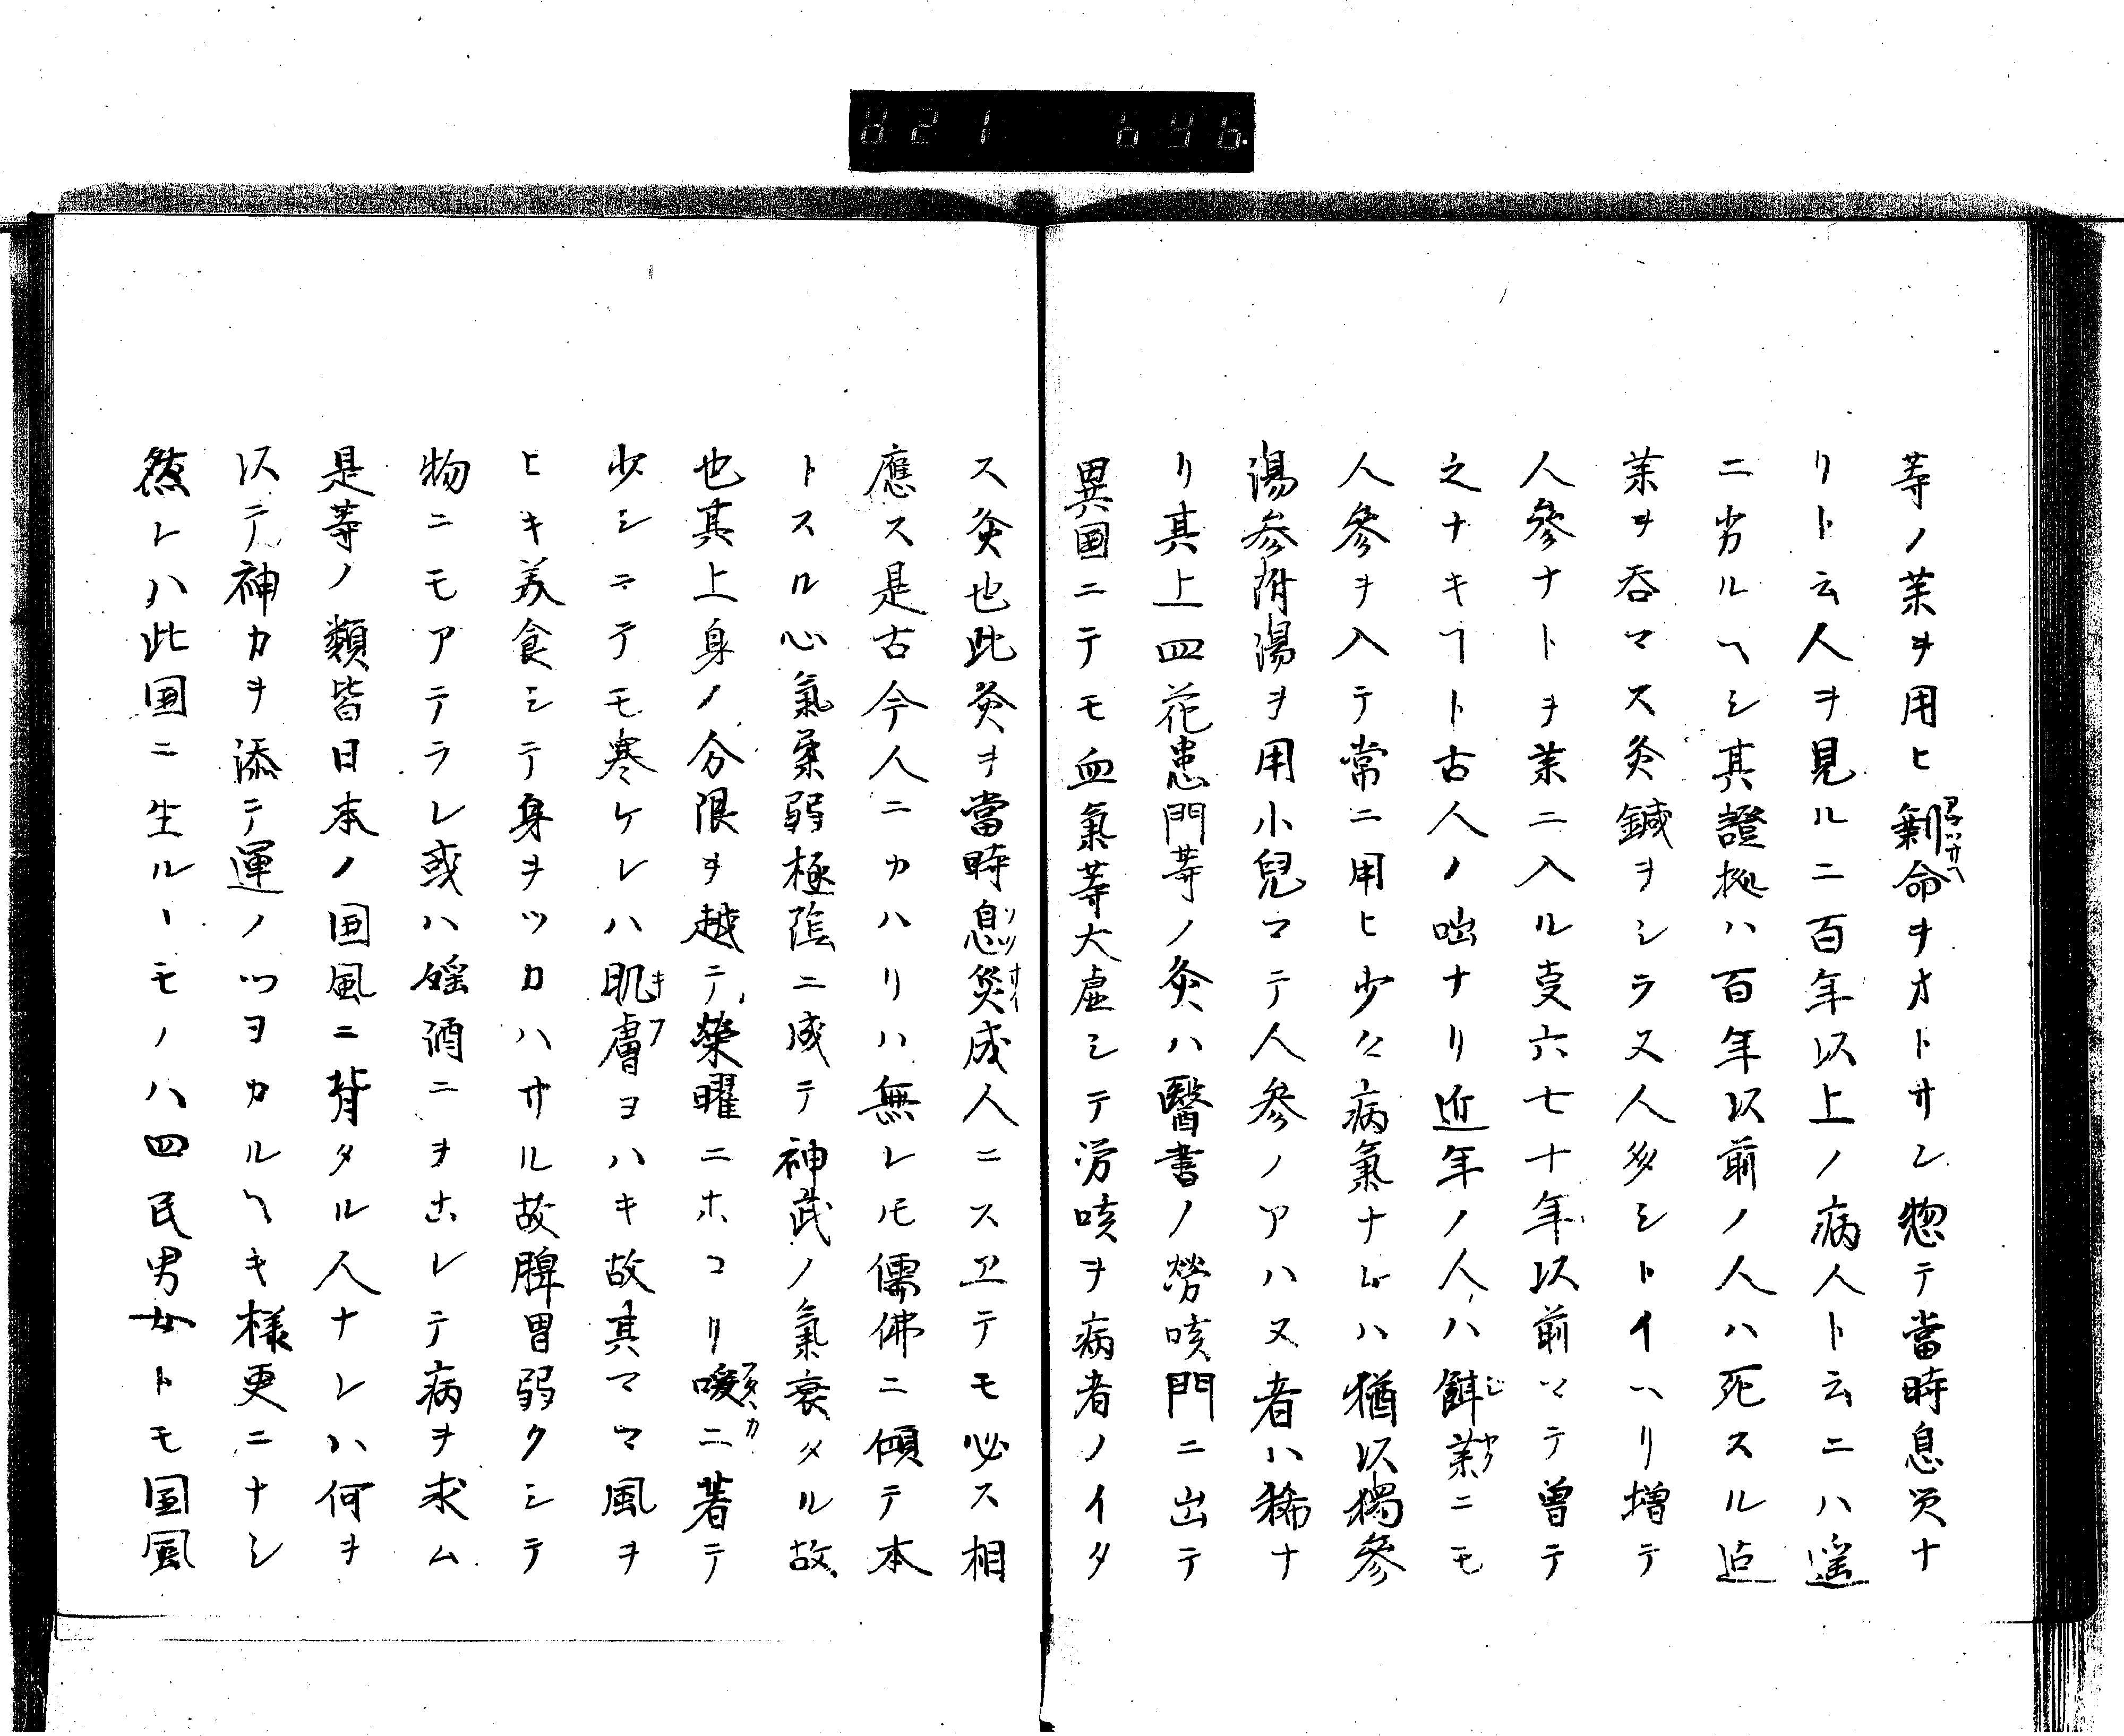 821 696.
等ノ茉ヲ用ヒ剰命ヲオトサン惣テ當時息災ナ
リト云人ヲ見ルニ百年以上ノ病人ト云ニハ遥
ニ劣ルヘシ其證拠ハ百年以前ノ人ハ死スル迠
茉ヲ呑マス灸鍼ヲシラス人多シトイヘリ増テ
人參ナトヲ茉ニ入ル叓六七十年以前マテ曽テ
之ナキヿト古人ノ咄ナリ近年ノ人ハ餌茉ニモ
人參ヲ入テ常ニ用ヒ少々病氣ナレハ猶以獨參
湯参附湯ヲ用小兒マテ人参ノアハヌ者ハ稀ナ
リ其上四花患門等ノ灸ハ醫書ノ勞咳門ニ出テ
異国ニテモ血氣等大虚シテ労咳ヲ病者ノイタ
ス灸也此灸ヲ當時息災成人ニスヱテモ必ス相
應ス是古今人ニカハリハ無レモ儒佛ニ傾テ本
トスル心氣柔弱極陰ニ成テ神武ノ氣衰タル故
也其上身ノ分限ヲ越テ榮曜ニホコリ暖ニ著テ
少シニテモ寒ケレハ肌膚ヨハキ故其マヽ風ヲ
ヒキ美食シテ身ヲツカハサル故脾胃弱クシテ
物ニモアテラレ或ハ婬酒ニヲホレテ病ヲ求ム
是等ノ類皆日本ノ国風ニ背タル人ナレハ何ヲ
以テ神カヲ添テ運ノツヨカルヘキ様更ニナシ
然レハ此国ニ生ルヽモノハ四民男女トモ国風